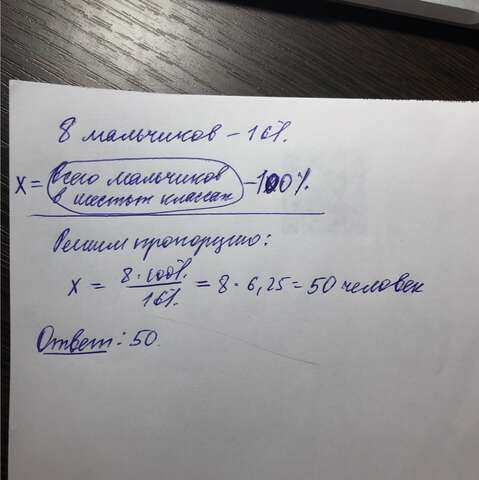 8 мальчиков – 16%.
X = всего мальчиков в шестых классах – 100%.
Решим пропорцию:
X = 8·100%/16% = 8·6,25 = 50 человек
Ответ: 50.